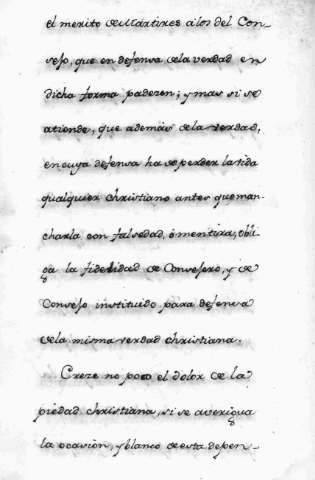 el merito de Martires a los del Con-
sejo, que en defensa dela verdad en
dicha forma padecen; y mas si se
atiende, que además dela verdad,
en cuya defensa ha de perder la vida
qualquier christiano antes que man-
charla con falsedad, ò mentira, obli-
ga la fidelidad de Consejero, y de
Consejo instituido para defensa
dela misma verdad christiana.
Creze no poco el dolor de la
piedad christiana, si se averigua
la ocasion, y blanco de esta defen-